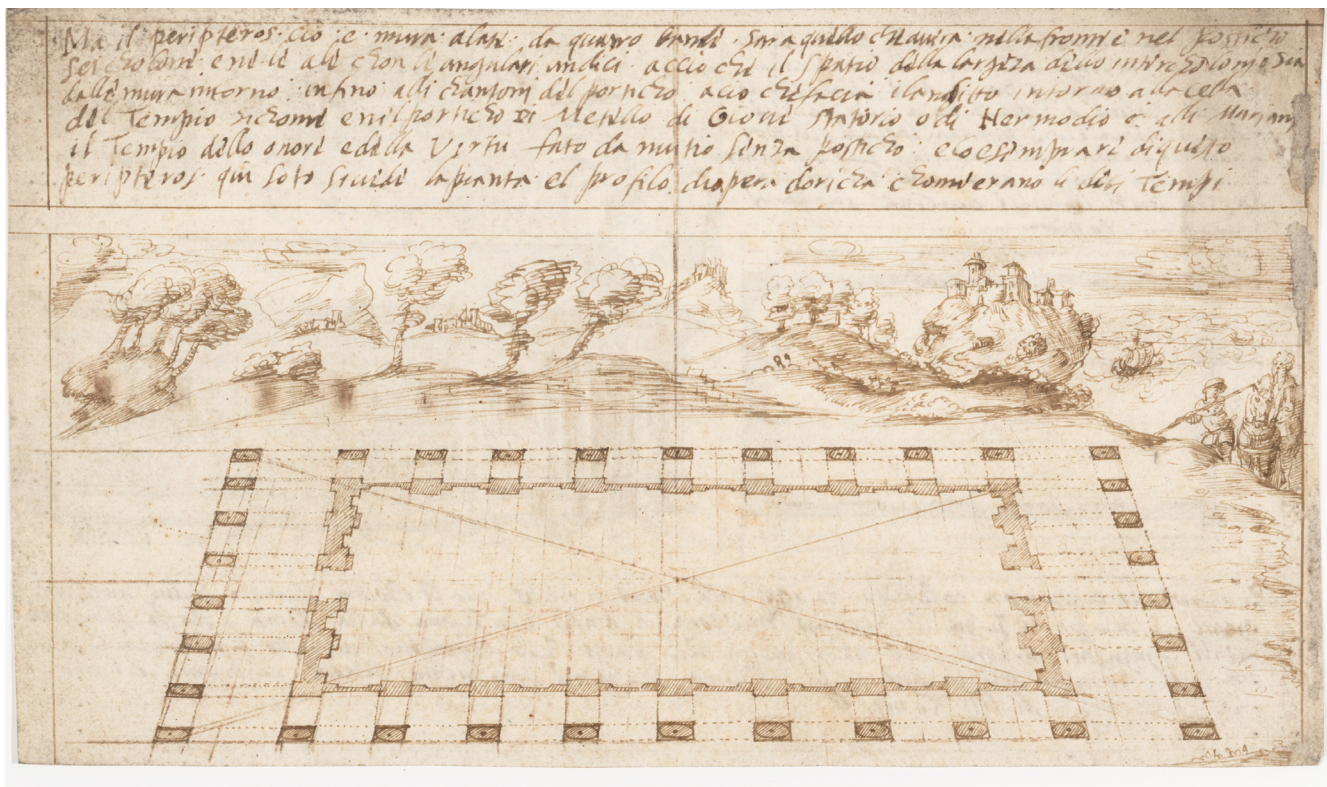 Ma il peripteros cio e mura alate da quatro bande sara quello che avra nella fronte nel posticho
sei cholone e ne le ale chon le angulari undici accio che il spatio della largeza dello interchelomnio sia
dalle mura intorno infino alli chantoni del porticho acio che facia il andito intorno a la cella
del Tempio sichome e nil porticho di Metello di Giove statorio o di Hermodio e alli Mariani
il Tempio dello onore e della Virtu fato da mutio senza posticho e lo esimprare di questo
peripteros qui soto si vede la pianta el profilo di opera doricha chome erano li diti Tempi